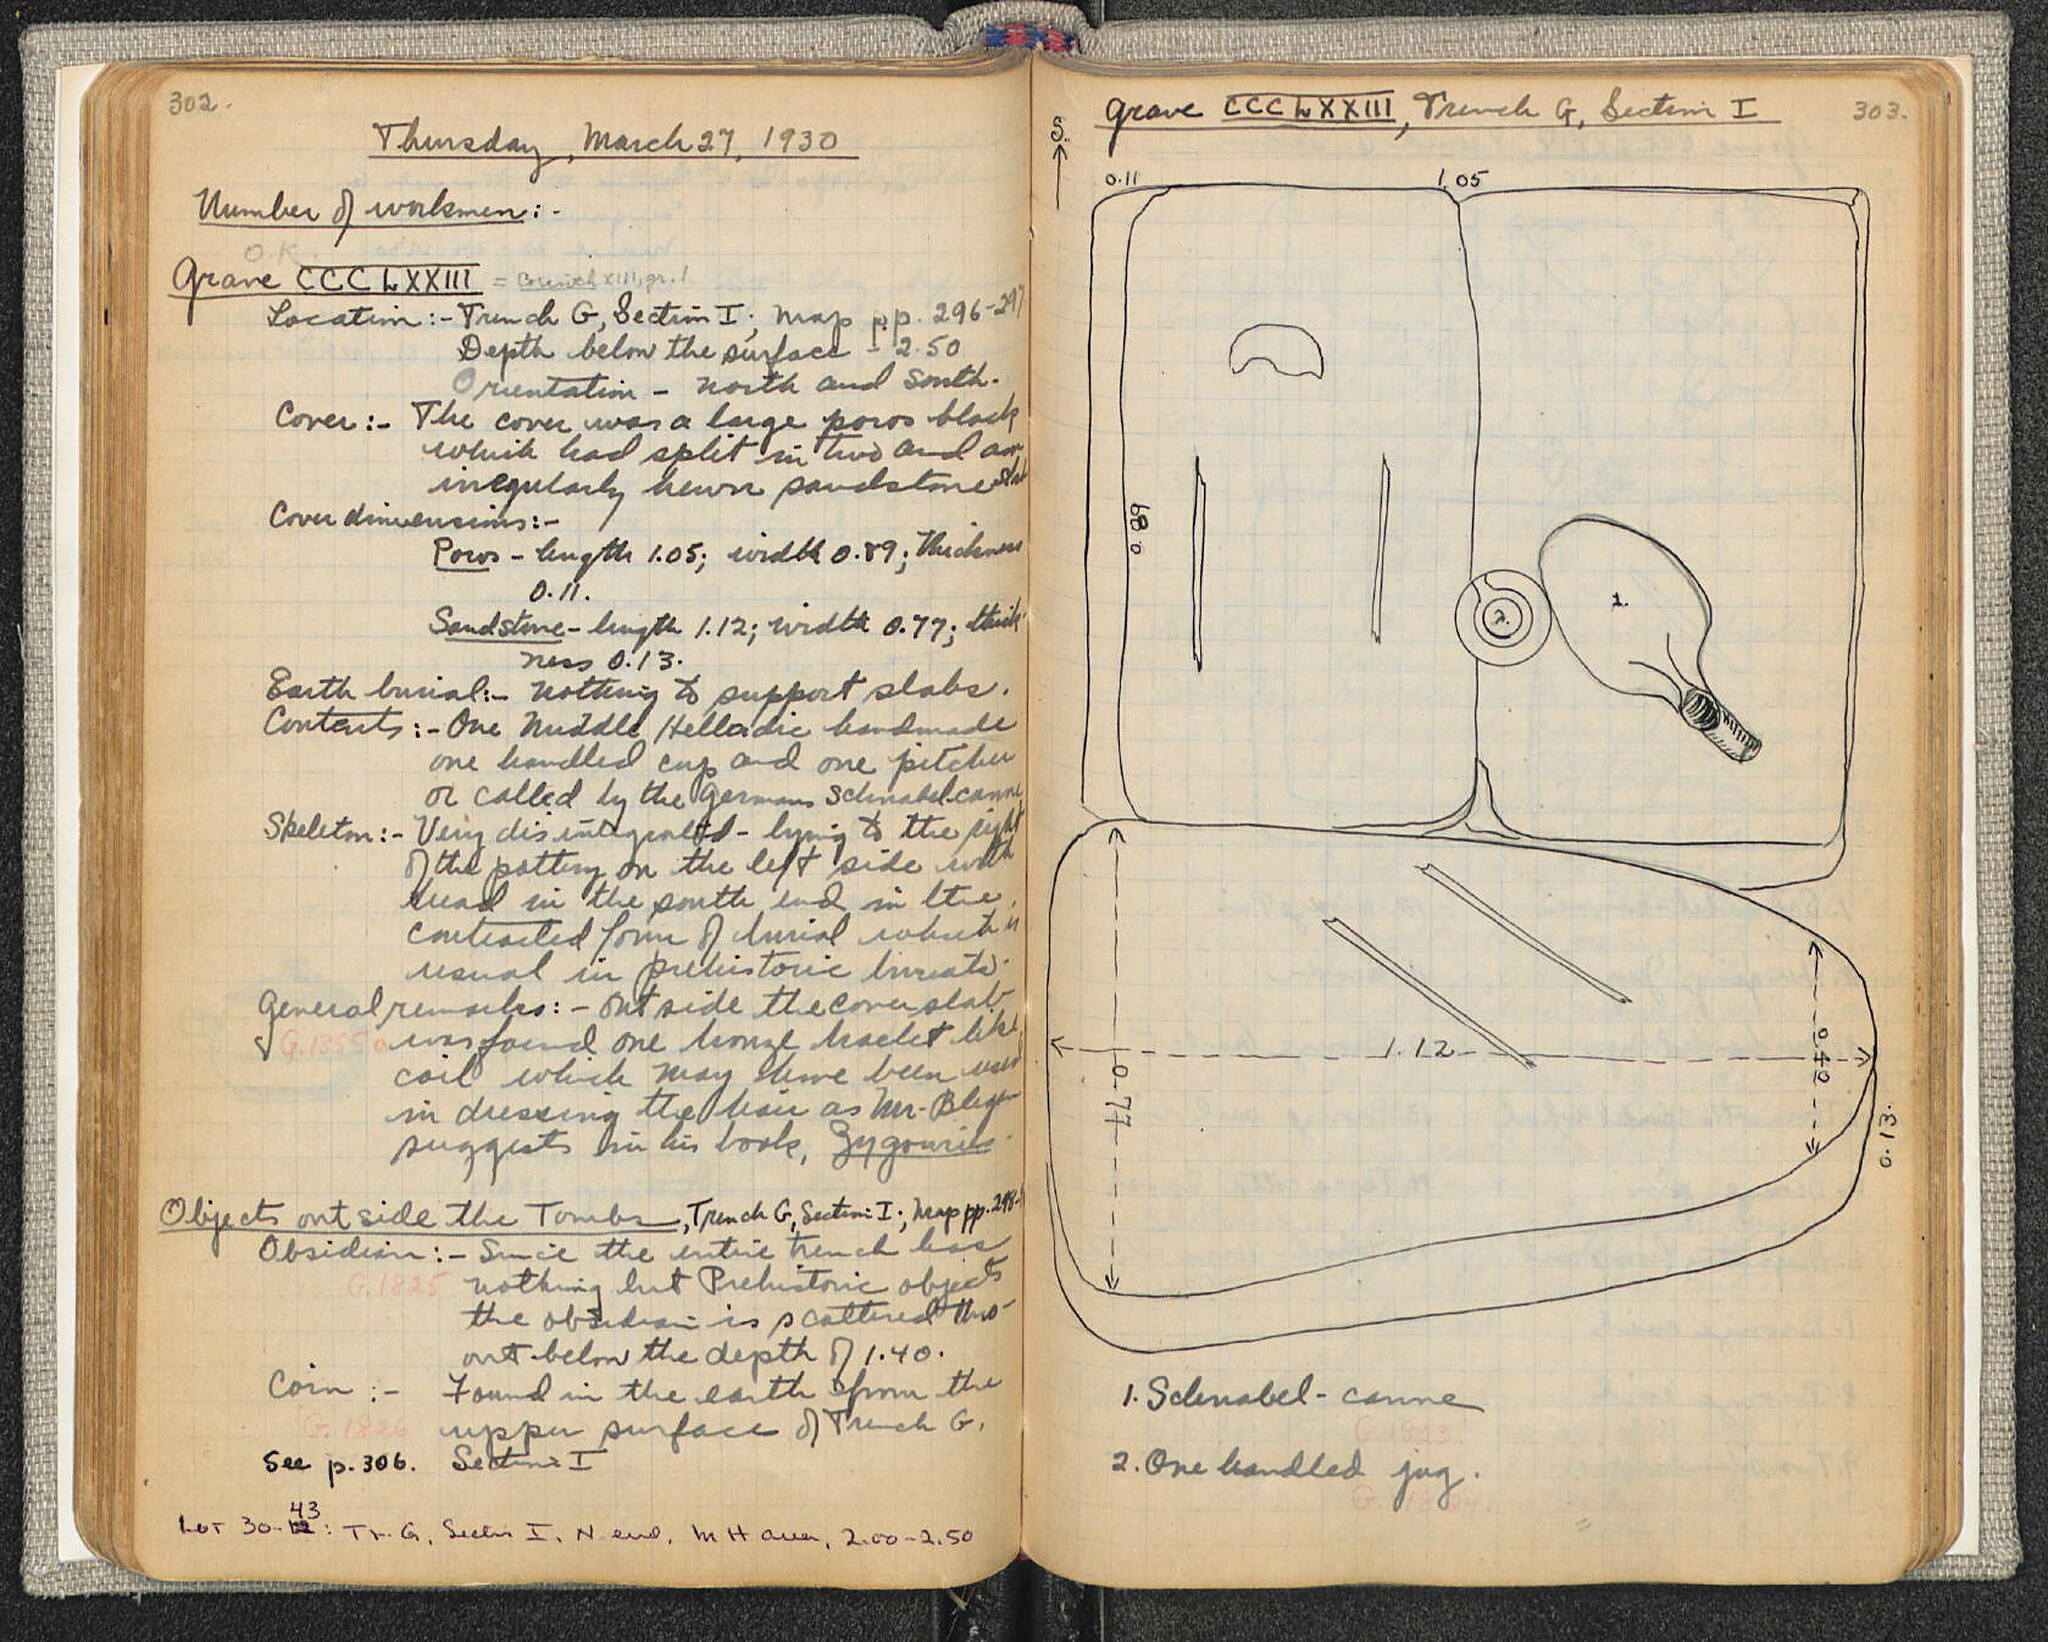 302.
Thursday, March 27, 1930
Number of workmen:-
O.K.
Grave CCCLXXIII = Corinth XIII, gr. 1
Location:- Trench G, Section I; map pp. 296-297
Depth below the surface - 2.50
Orientation - north and south.
Cover:- The cover was a large poros block
which had split in two and an
irregularly hewn sandstone slab
Cover dimensions:-
Poros - length 1.05; width 0.89; thickness
0.11.
Sandstone - length 1.12; width 0.77; thick-
ness 0.13.
Earth burial:- nothing to support slabs.
Contents:- One Middle Helladic handmade
one handled cup and one pitcher
or called by the Germans Schnabel-canne
Skeleton:- Very disintegrated - lying to the right
of the pottery on the left side with
head in the south end in the
contracted form of burial which is
usual in prehistoric burials.
General remarks:- Outside the cover slab
G.1855 a was found one bronze bracelet like
coil which may have been used
in dressing the hair as Mr. Blegen
suggests in his book, Zygouries.
Objects outside the Tombs, Trench G, Section I; Map pp. 298-
Obsidian:- Since the entire trench has
G.1825 nothing but Prehistoric objects
the obsidian is scattered thro-
out below the depth of 1.40.
Coin:- Found in the earth from the
G.1826 upper surface of Trench G,
See p. 306. Section I
Lot 30-43: Tr. G, Section I, N end, MH area, 2.00-2.50
Grave CCCLXXIII, Trench G, Section I
303.
S.
0.11
1.05
0.89
1.
2.
1.12
0.77
0.40
0.13.
1. Schnabel-canne
G.1823.
2. One handled jug.
G.1824.